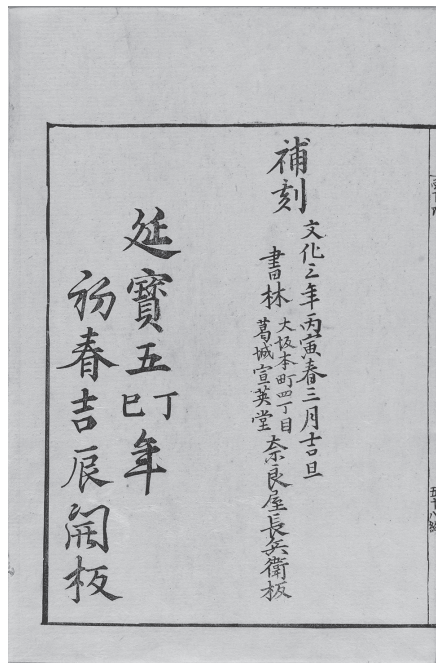 補刻
文化三年丙寅春三月吉旦
書林
大坂本町四丁目
葛城宣英堂
奈良屋長兵衛板
延寶五丁巳年
初春吉辰開板